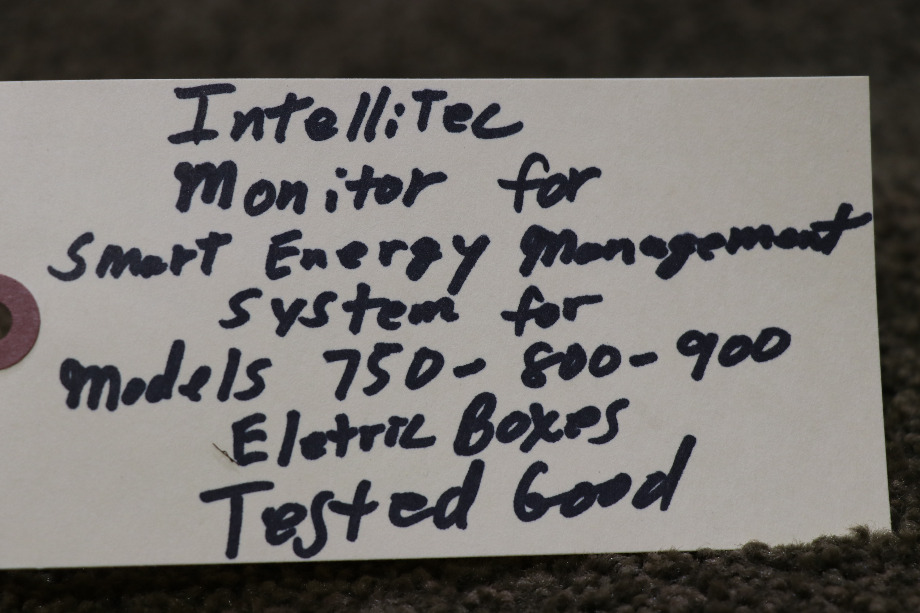 IntelliTec
Monitor for
Smart Energy Management
System for
Models 750-800-900
Eletric Boxes
Tested Good